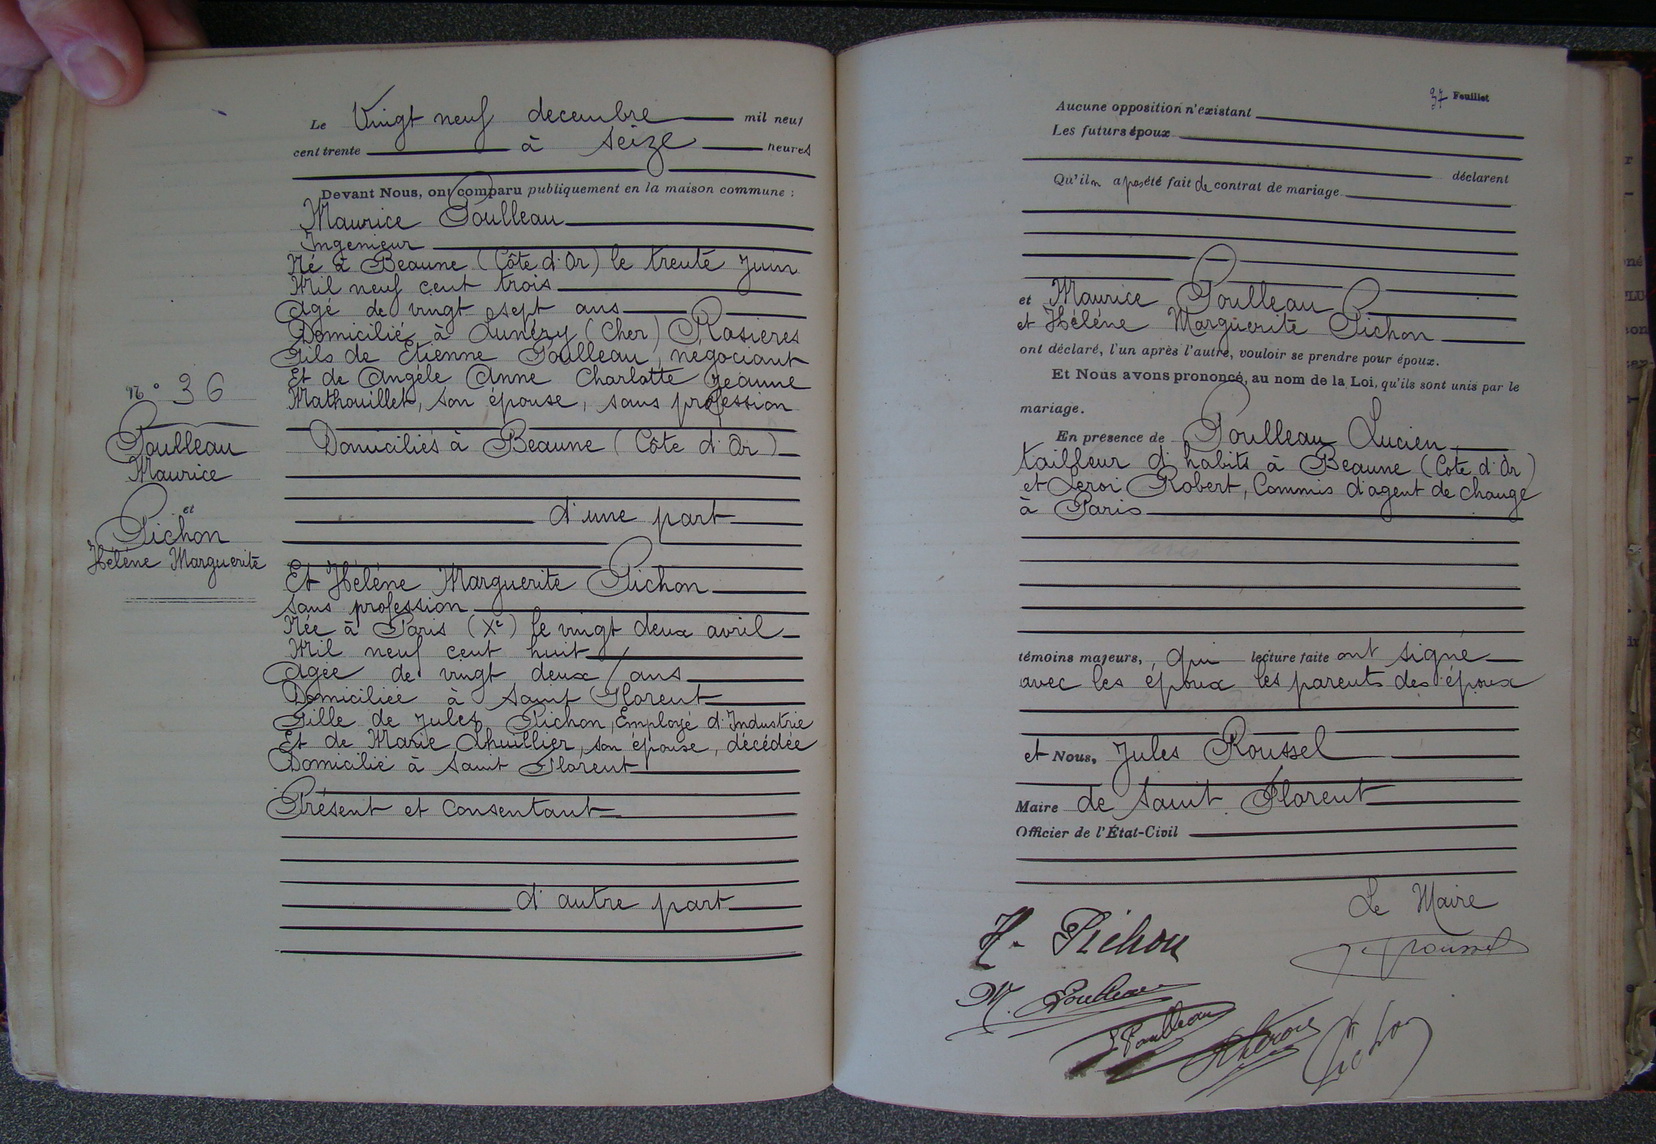 Le Vingt neuf decembre mil neuf
cent trente à seize heures
Devant Nous, ont comparu publiquement en la maison commune :
Maurice Poulleau
Ingenieur
Né à Beaune (Côte d'Or) le trente Juin
Mil neuf cent trois
Agé de vingt sept ans
Domicilié à Lunéry (Cher) Rosieres
Fils de Etienne Poulleau, négociant
Et de Angéle Anne Charlotte Jeanne
Mathouillet, son épouse, sans profession
Domiciliés à Beaune (Côte d'Or)
d'une part
N° 36
Poulleau
Maurice
et
Pichon
Héléne Marguerite
Et Héléne Marguerite Pichon
sans profession
Née à Paris (Xe) le vingt deux avril
Mil neuf cent huit
Agée de vingt deux ans
Domiciliée à Saint Florent
Fille de Jules Pichon, Employé d'Industrie
Et de Marie Lhuillier, son épouse, décédée
Domicilié à Saint Florent
Présent et Consentant
d'autre part
37 Feuillet
Aucune opposition n'existant
Les futurs époux
déclarent
Qu'il n a pas été fait de contrat de mariage
et Maurice Poulleau
et Héléne Marguerite Pichon
ont déclaré, l'un après l'autre, vouloir se prendre pour époux.
Et Nous avons prononcé, au nom de la Loi, qu'ils sont unis par le
mariage.
En présence de Poulleau Lucien
tailleur d'habits à Beaune (Cote d'Or)
et Leroi Robert, Commis d'agent de change
à Paris
témoins majeurs, qui lecture faite ont signé
avec les époux les parents des époux
et Nous, Jules Roussel
Maire de Saint Florent
Officier de l'État-Civil
Le Maire
H. Pichon
J. Roussel
M. Poulleau
L Poulleau
Pichon